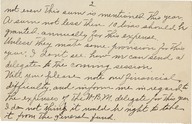 2
not even this sum is mentioned this year.
A sum not less than should be
granted annually for this expense.
Unless they make some provision for this
year I don't see how we can send a
delegate to the coming session.
Will you please note our financial
difficulty, and inform me in regard to
the expenses of the delegate for this year
I do not think it would be right to take
it from the general fund.